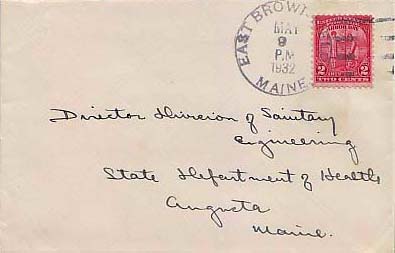 EAST BROW
MAY
9
P.M
1932
MAINE
2 2
TWO CENTS
Director Division of Sanitary
Engineering
State Department of Health
Augusta
Maine.